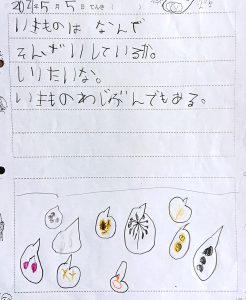 2021年5月5日てんき( )
いきものは なんで
そんざいしているか。
しりたいな。
いきものわじぶんでもある。